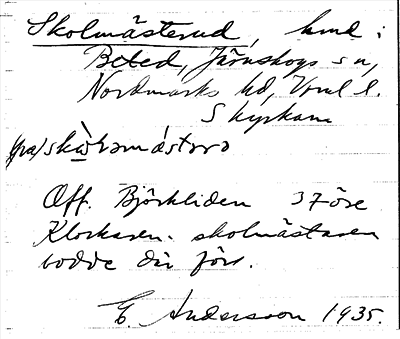 Skolmästerud, hmd i
Beted, Järnskogs sn,
Nordmarks hd, Vrml l.
S kyrkan
Off. Björkliden 37öre
Klockaren - skolmästaren
bodde där förr.
E. Andersson 1935.